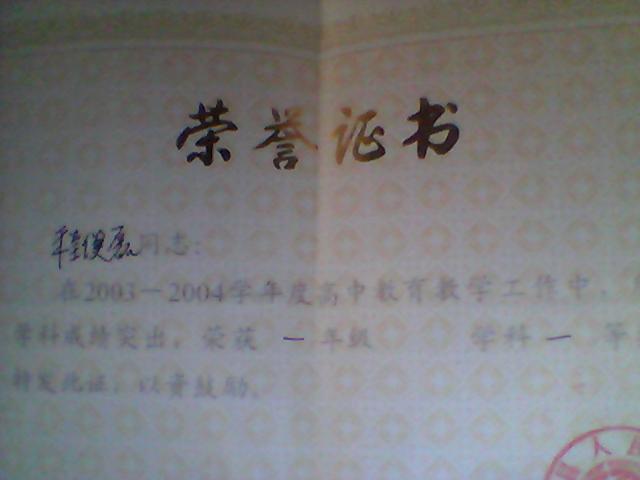 荣誉证书
同志:
在2003－2004学年度高中教育教学工作中,
学科成绩突出,荣获 一 年级 学科 一 等
特发此证,以资鼓励。
人民